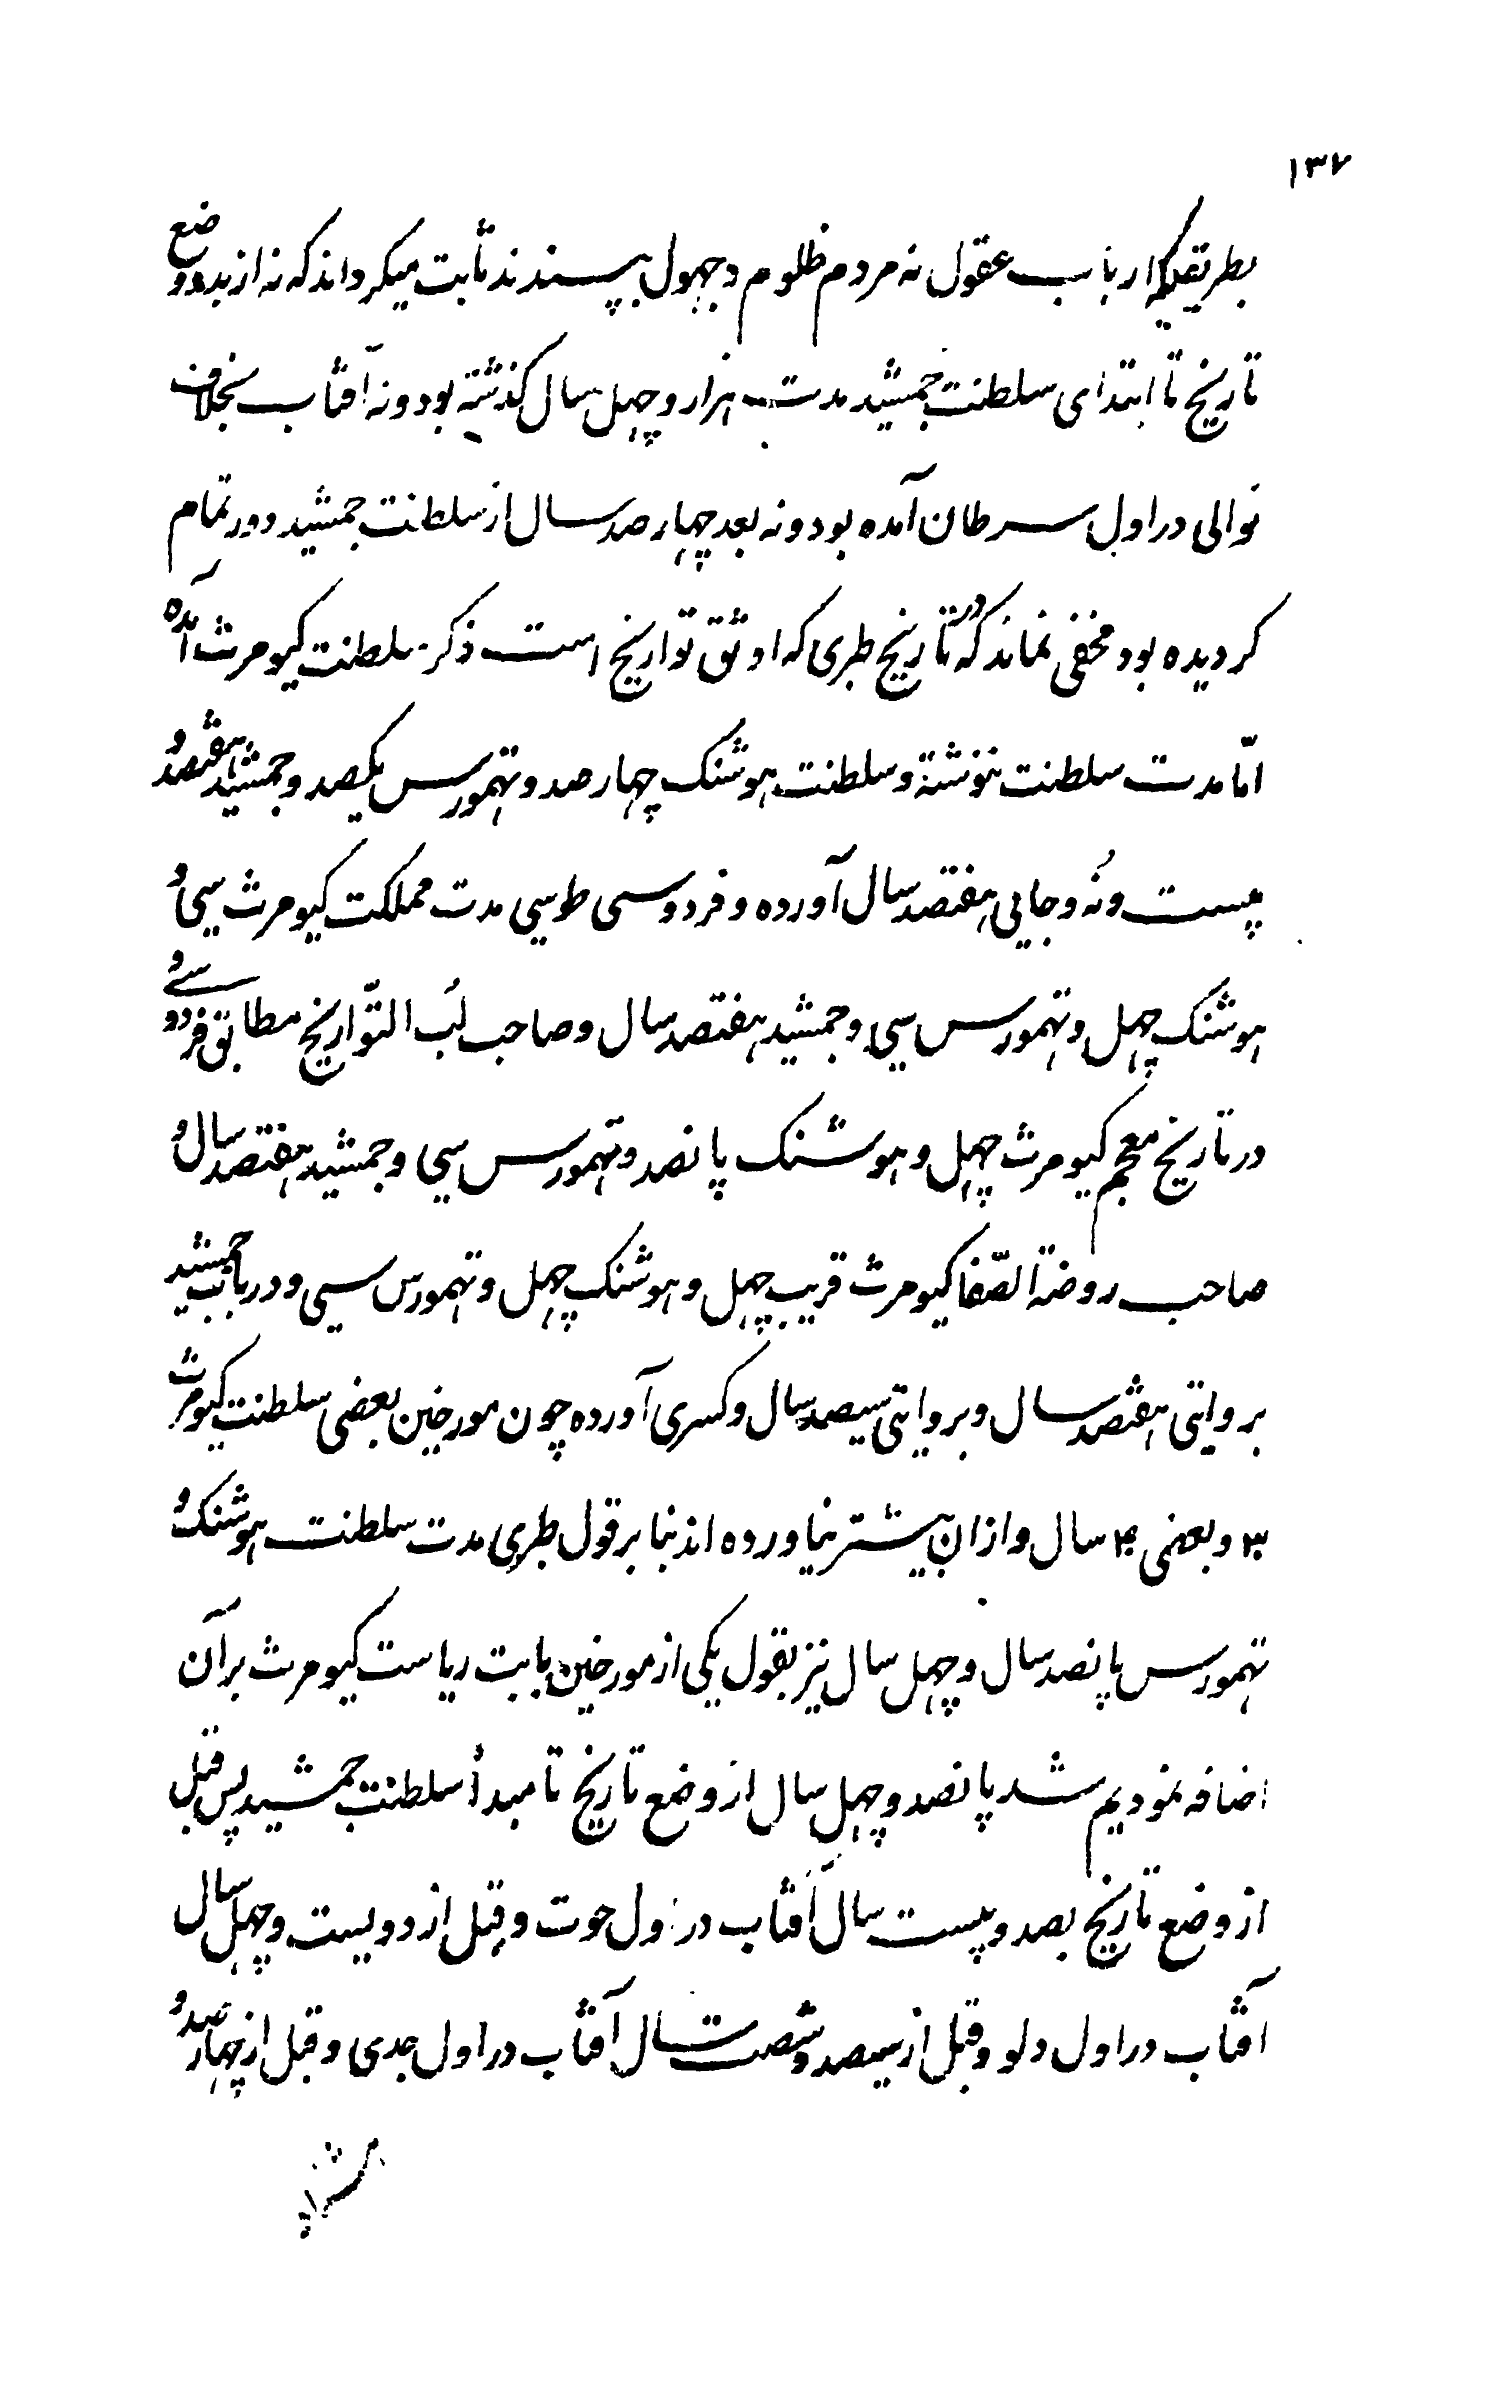 ۱۳۷
بطریقیکه ارباب عقول نه مردم ظلوم و جهول بپسندند ثابت میکرداند که نه از بدو وضع
تاریخ تا ابتدای سلطنت جمشید مدت هزار و چهل سال کذشته بود و نه آفتاب بخلاف
توالی در اول سرطان آمده بود و نه بعد چهار صد سال از سلطنت جمشید دور تمام
کردیده بود مخفی نماند که در تاریخ طبری که اوثق تواریخ است ذکر سلطنت کیومرث آمده
امّا مدت سلطنت ننوشته و سلطنت هوشنک چهار صد و تهمورس یکصد و جمشید هفتصد و
بیست و نُه و جایی هفتصد سال آورده و فردوسی طوسی مدت مملکت کیومرث سی و
هوشنک چهل و تهمورس سی و جمشید هفتصد سال و صاحب لُب التّواریخ مطابق فردوسی و
در تاریخ معجم کیومرث چهل و هوشنک پانصد و تهمورس سی و جمشید هفتصد سال و
صاحب روضة الصّفا کیومرث قریب چهل و هوشنک چهل و تهمورس سی و در باب جمشید
بروایتی هفتصد سال و بروایتی سیصد سال و کسری آورده چون مورخین بعضی سلطنت کیومرث
۳۰ و بعضی ۴۰ سال و ازان بیشتر نیاورده اند بنا بر قول طبری مدت سلطنت هوشنک و
تهمورس پانصد سال و چهل سال نیز بقول یکی از مورخین بابت ریاست کیومرث بر آن
اضافه نمودیم شد پانصد و چهل سال از وضع تاریخ تا مبدأ سلطنت جمشید پس قبل
از وضع تاریخ بصد و بیست سال آفتاب در اول حوت و قبل از دویست و چهل سال
آفتاب در اول دلو و قبل از سیصد و شصت سال آفتاب در اول جدی و قبل از چهار صد و